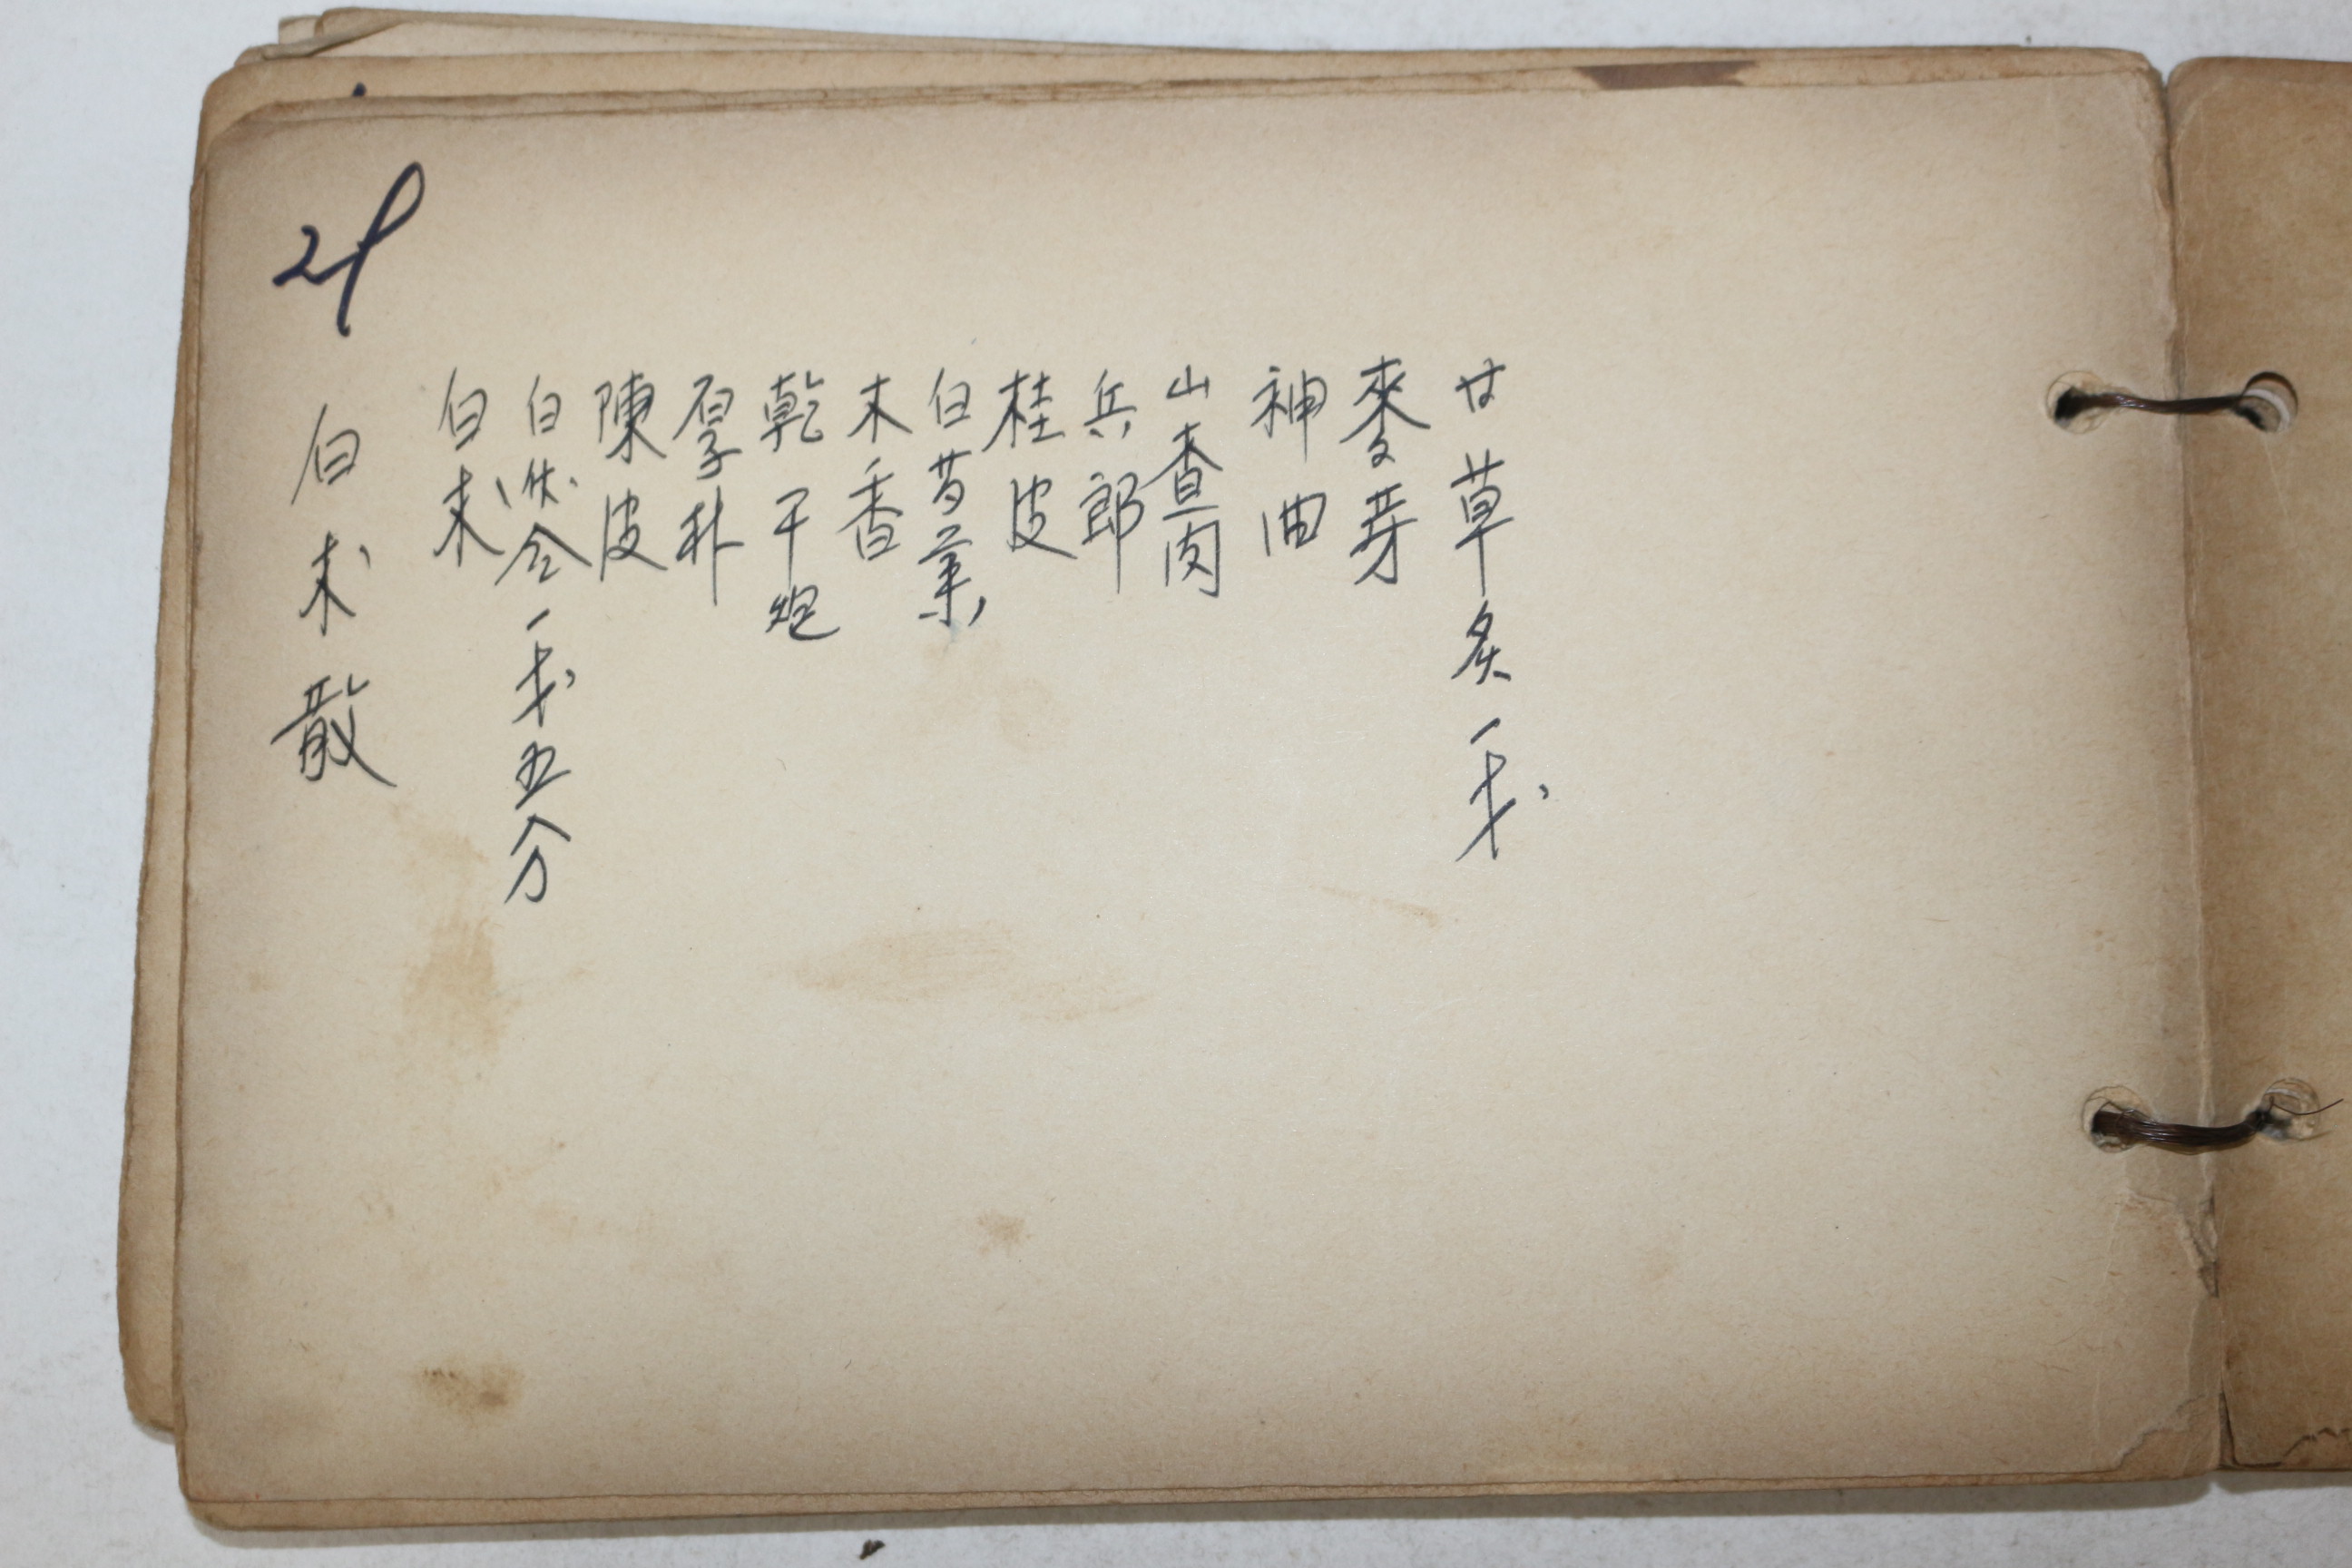 21
白朮散
白朮
白茯令一戔五分
陳皮
厚朴
乾干炮
木香
白芍薬
桂皮
兵郎
山査肉
神曲
麥芽
甘草炙一戔